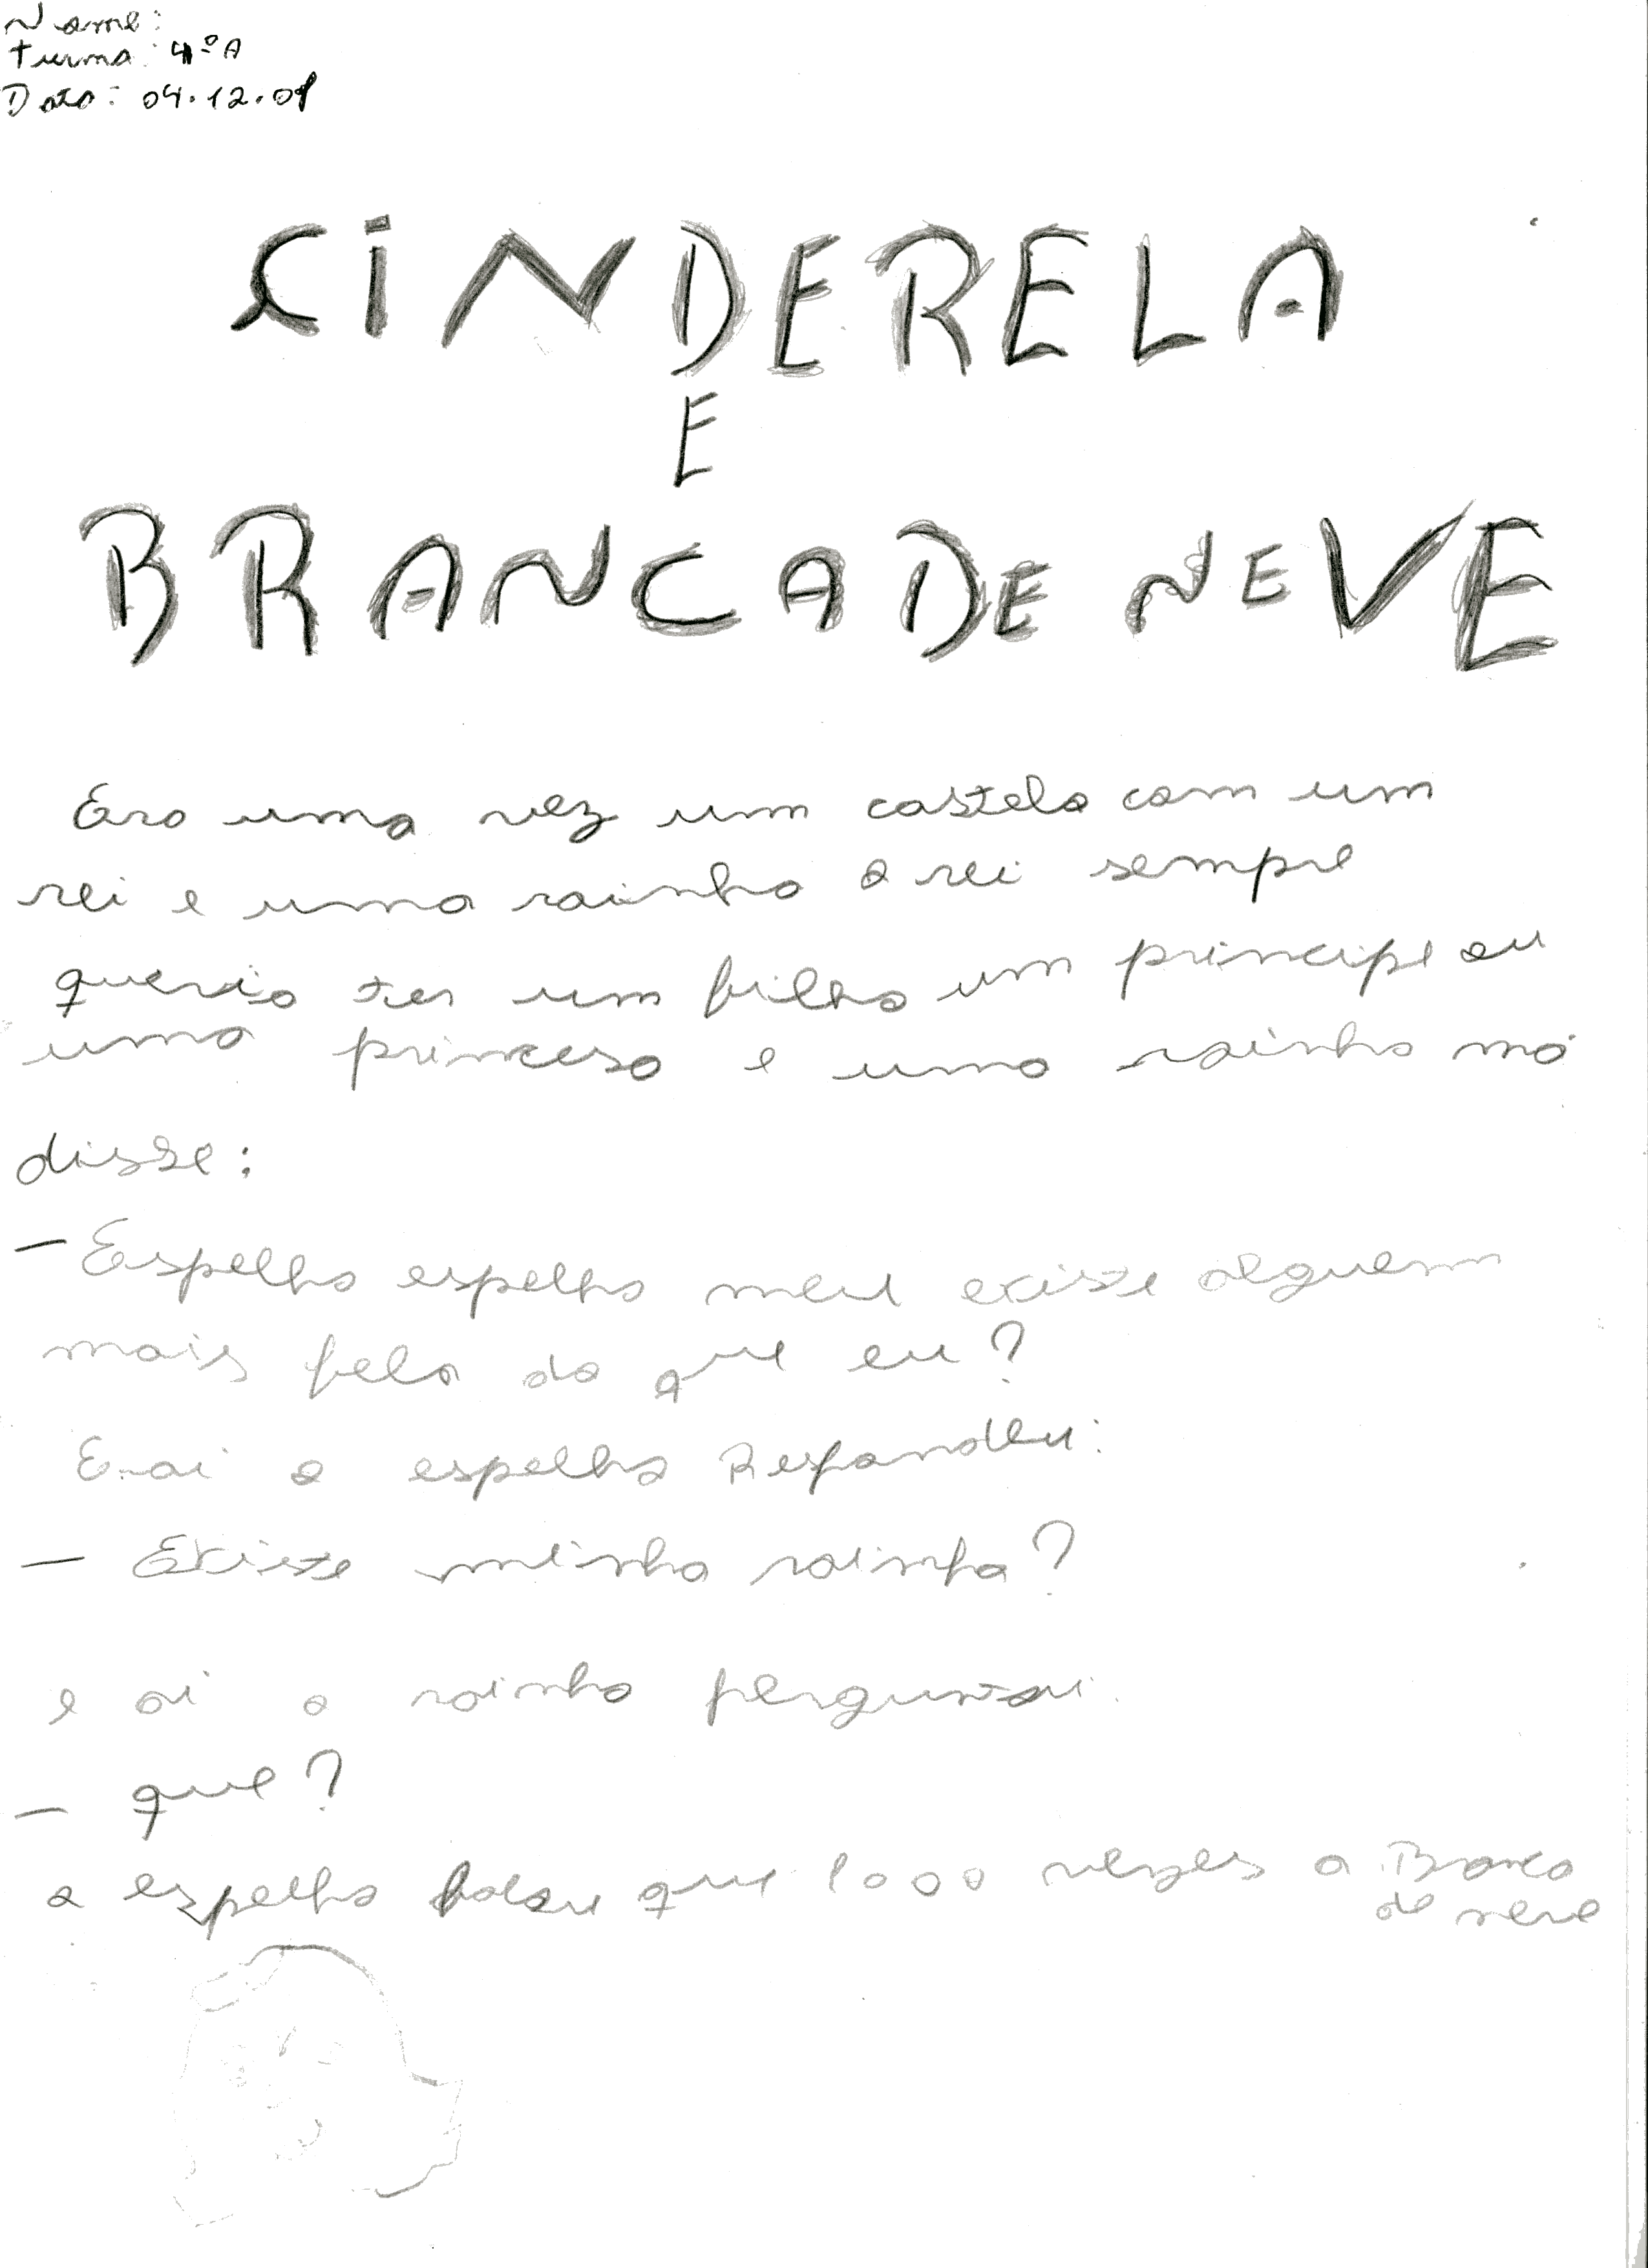 Nome:
Turma: 4ºA
Data: 04.12.01
CINDERELA
E
BRANCA DE NEVE
Era uma vez um castelo com um
rei e uma rainha o rei sempre
queria ter um filho um principe ou
uma princesa e uma rainha má
disse:
— Espelho espelho meu existe alguem
mais bela do que eu?
E ai o espelho Respondeu:
— Existe minha rainha?
e ai a rainha perguntou.
— que?
o espelho falou que 1000 vezes a Branca
de neve